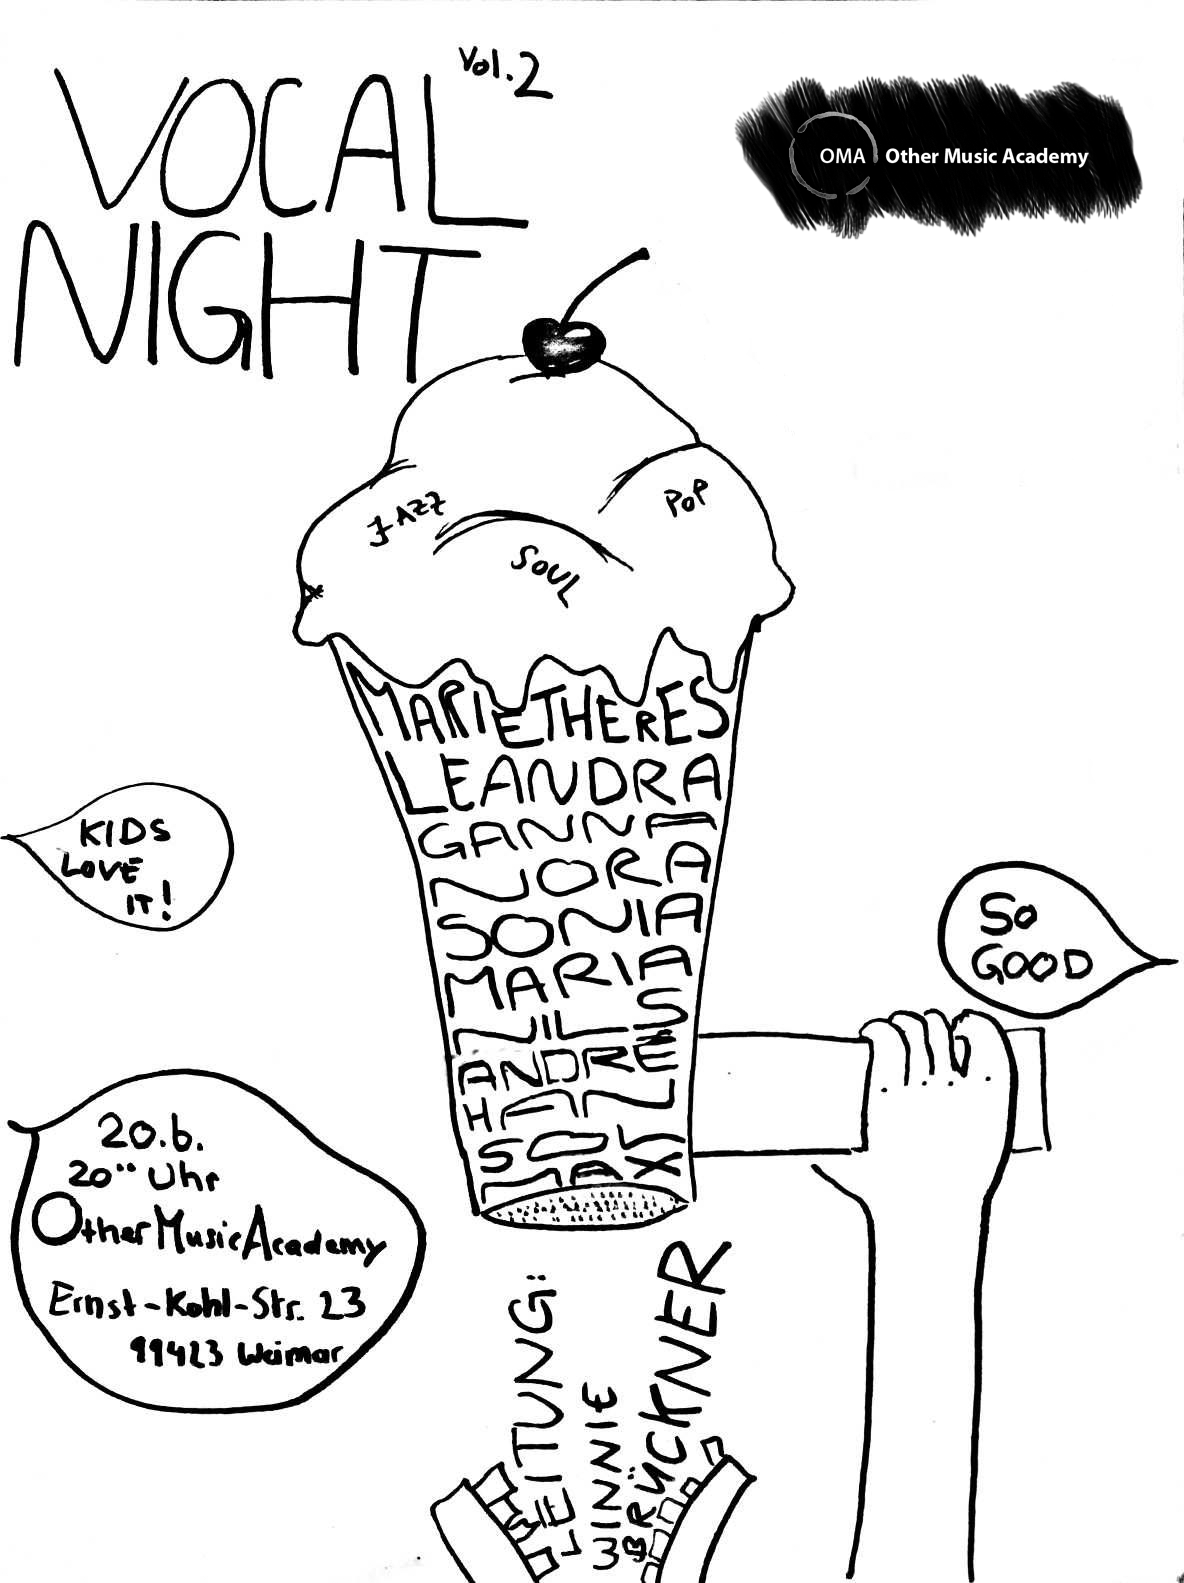 VOCAL Vol.2
NIGHT
OMA Other Music Academy
JAZZ
POP
SOUL
MARIETHERES
LEANDRA
GANNA
NORA
SONIA
MARIA
NILS
ANDRE
HAN
SOL
MAX
KIDS
LOVE
IT!
SO
GOOD
20.6.
20°° Uhr
Other Music Academy
Ernst-Kohl-Str. 23
99423 Weimar
LEITUNG:
WINNIE
BRÜCKNER